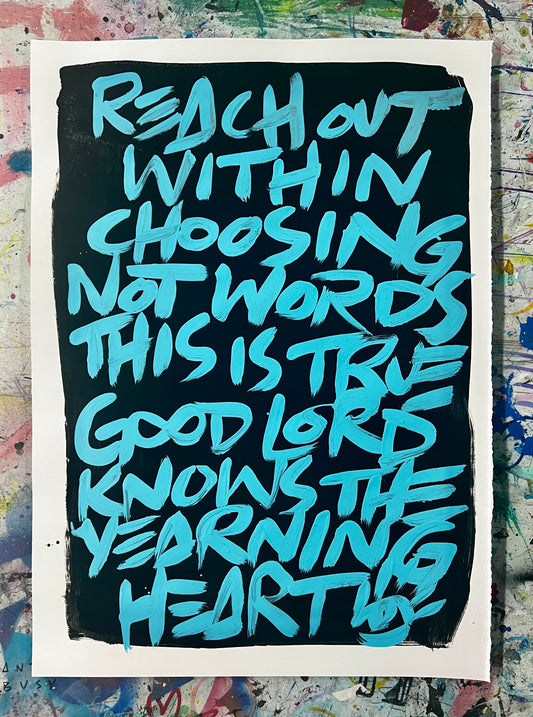 REACH OUT
WITHIN
CHOOSING
NOT WORDS
THIS IS TRUE
GOOD LORD
KNOWS THE
YEARNING
HEART